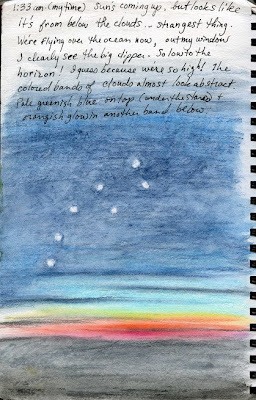 1:33 am (my time) Sun's coming up. but looks like
it's from below the clouds... strangest thing.
We're flying over the ocean now, out my window
I clearly see the big dipper. So low to the
horizon! I guess because we're so high! The
colored bands of clouds almost look abstract
Pale greenish blue on top (under the stars) +
orangish glow in another band below